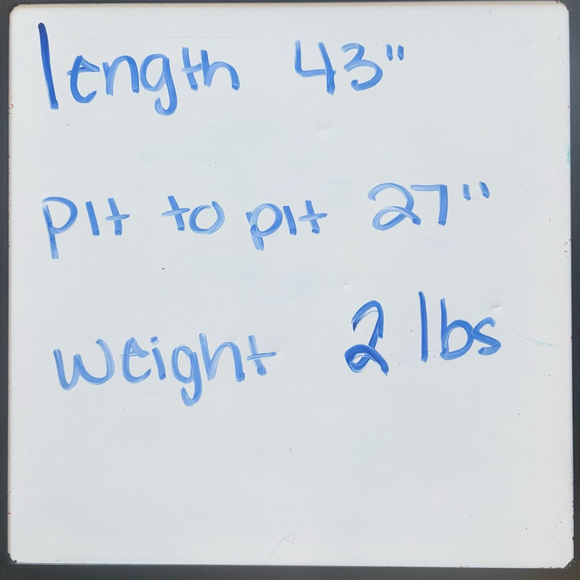 length 43"
pit to pit 27"
weight 2 lbs